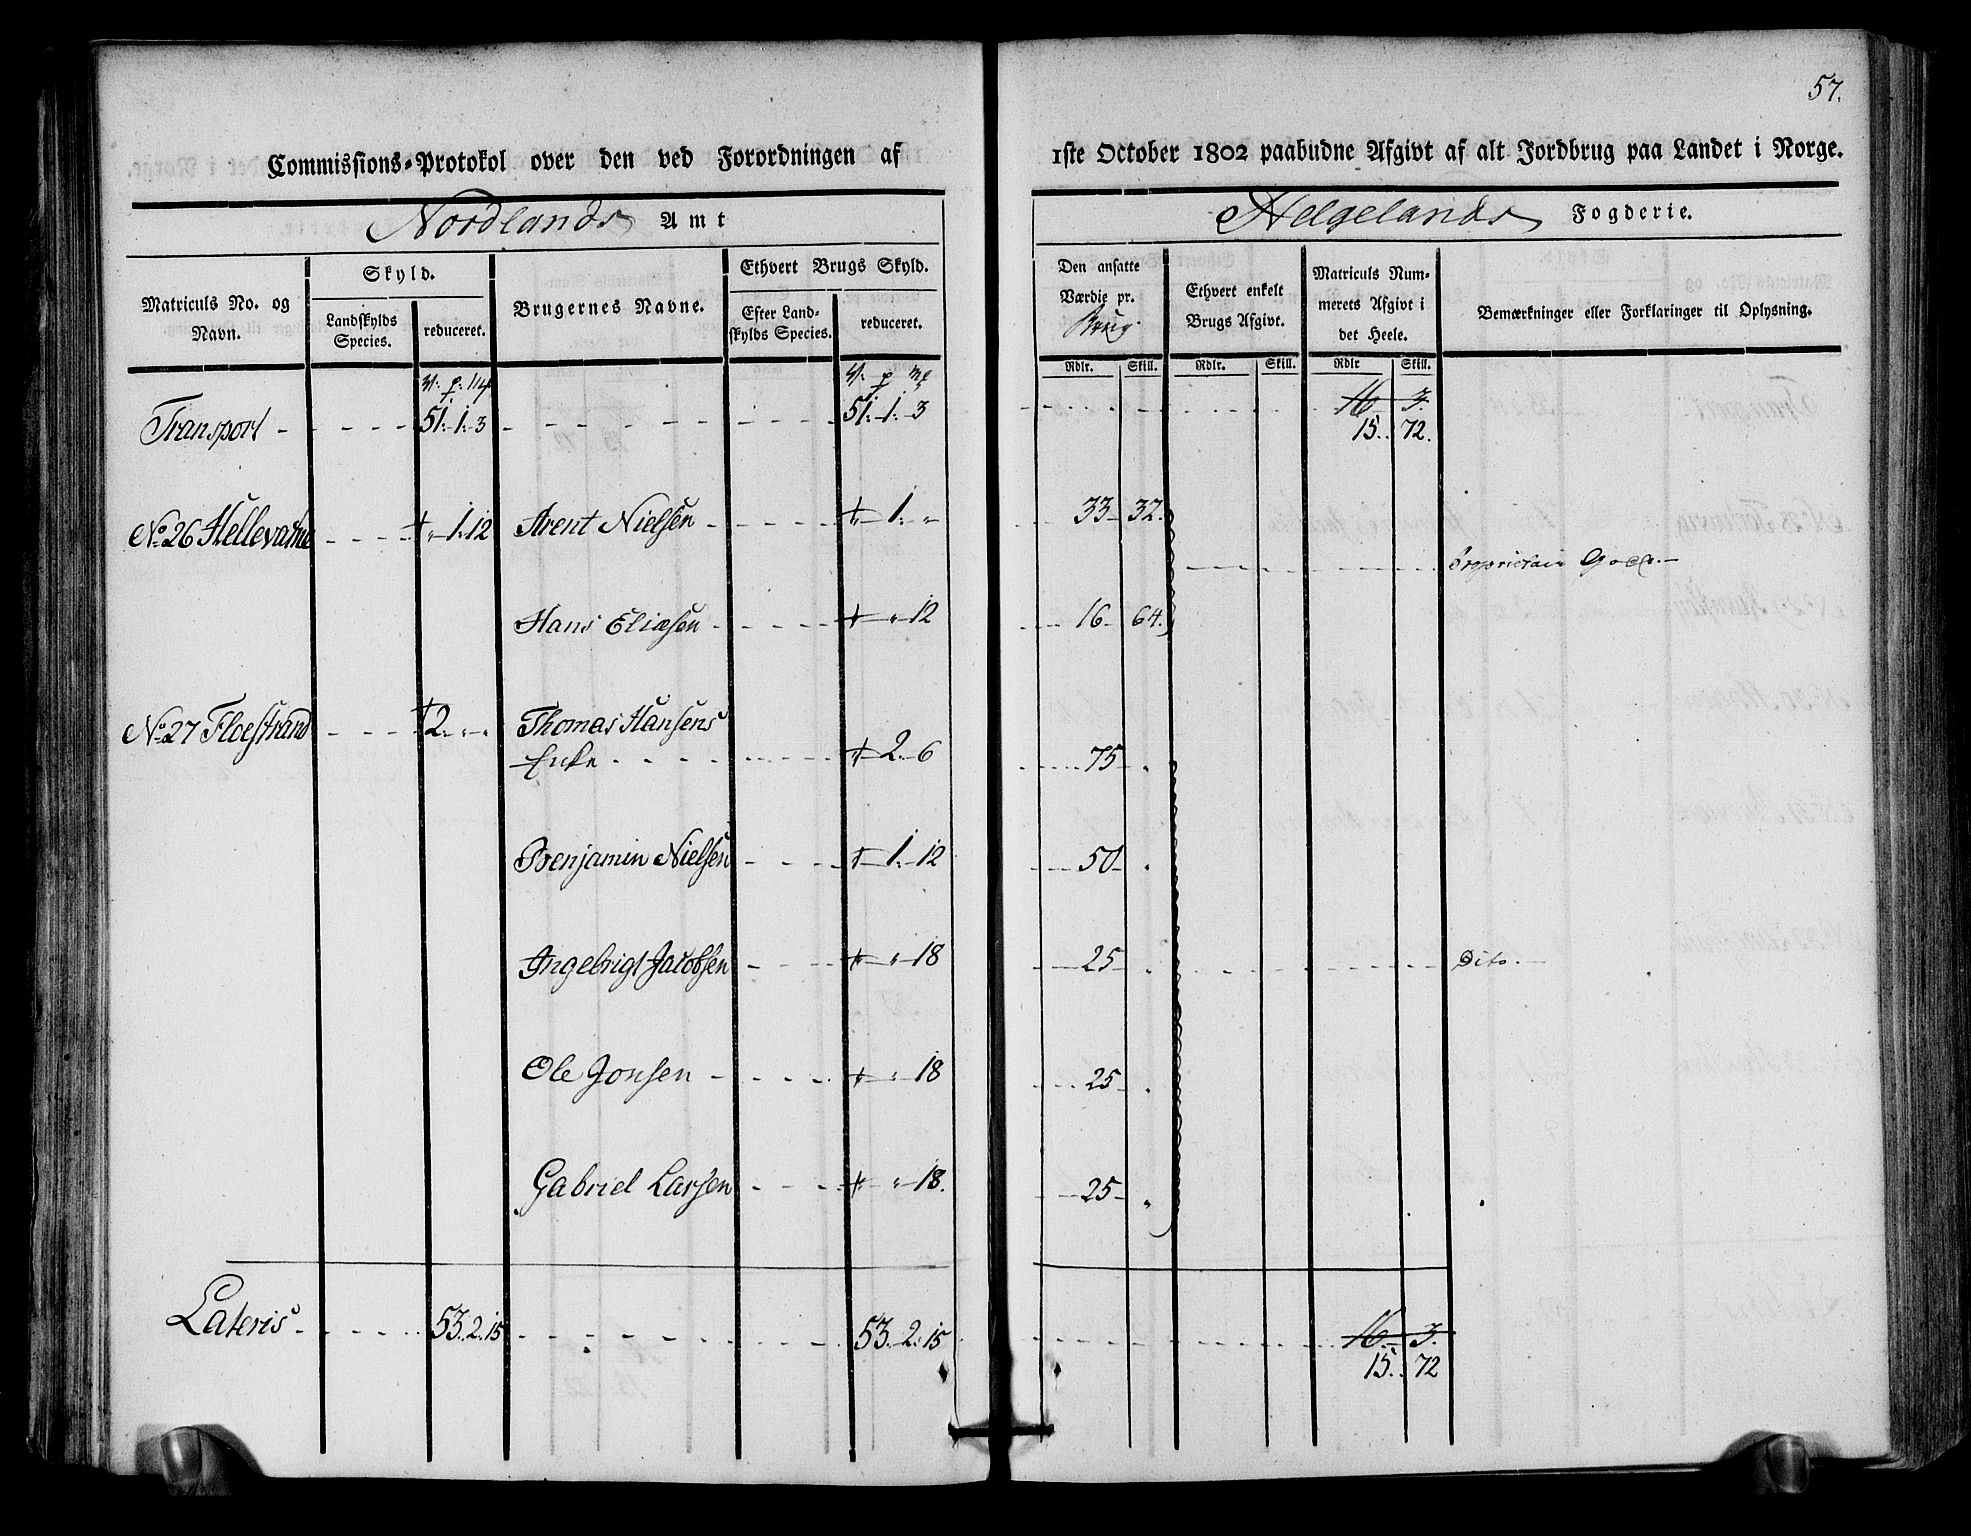 57.
Commissions-Protokol over den ved Forordningen af
1ste October 1802 paabudne Afgivt af alt Jordbrug paa Landet i Norge.
Nordlands Amt
Helgelands Fogderie.
Matriculs No. og Navn.
Skyld.
Landskylds Species.
reduceret.
Brugernes Navne.
Ethvert Brugs Skyld.
Efter Landskylds Species.
reduceret.
Den ansatte Værdie pr. Brug.
Rdlr. Skill.
Ethvert enkelt Brugs Afgivt.
Rdlr. Skill.
Matriculs Nummerets Afgivt i det Heele.
Rdlr Skill.
Bemærkninger eller Forklaringer til Oplysning.
Transport - 51. 1. 3 - 51. 1. 3 - 16 3.
15. 72.
No 26 " 1. 12 Arent Nielsen 1. " 33 32.
Proprietair
Hans Eliasen " 12 16 64.
No 27 Floestrand 2. " " Thomas Hansens
Enke 2. 6 75 "
Benjamin Nielsen 1. 12 50 "
Ingebrigt Jacobsen " 18 25 " Dito.
Ole Jonsen " 18 25 "
Gabriel Larsen " 18. 25 "
Lateris 53. 2. 15 53. 2. 15 16 3.
15. 72